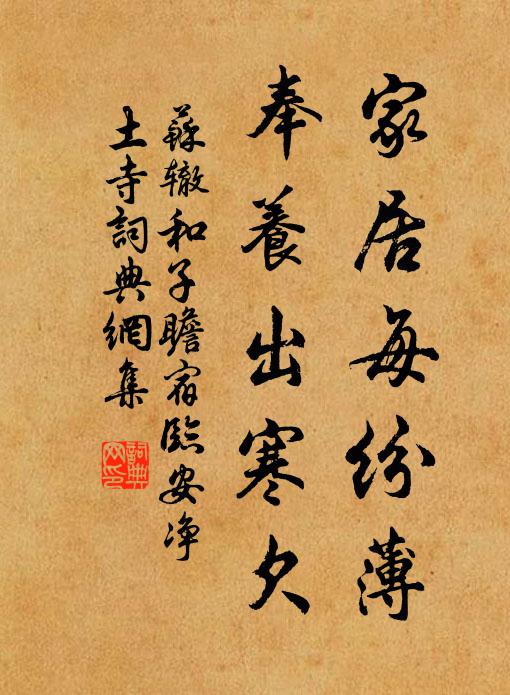 家居每纷薄
奉養出寒欠
蘇辙和子瞻宿臨安净
土寺詞典網集
詞典
网印